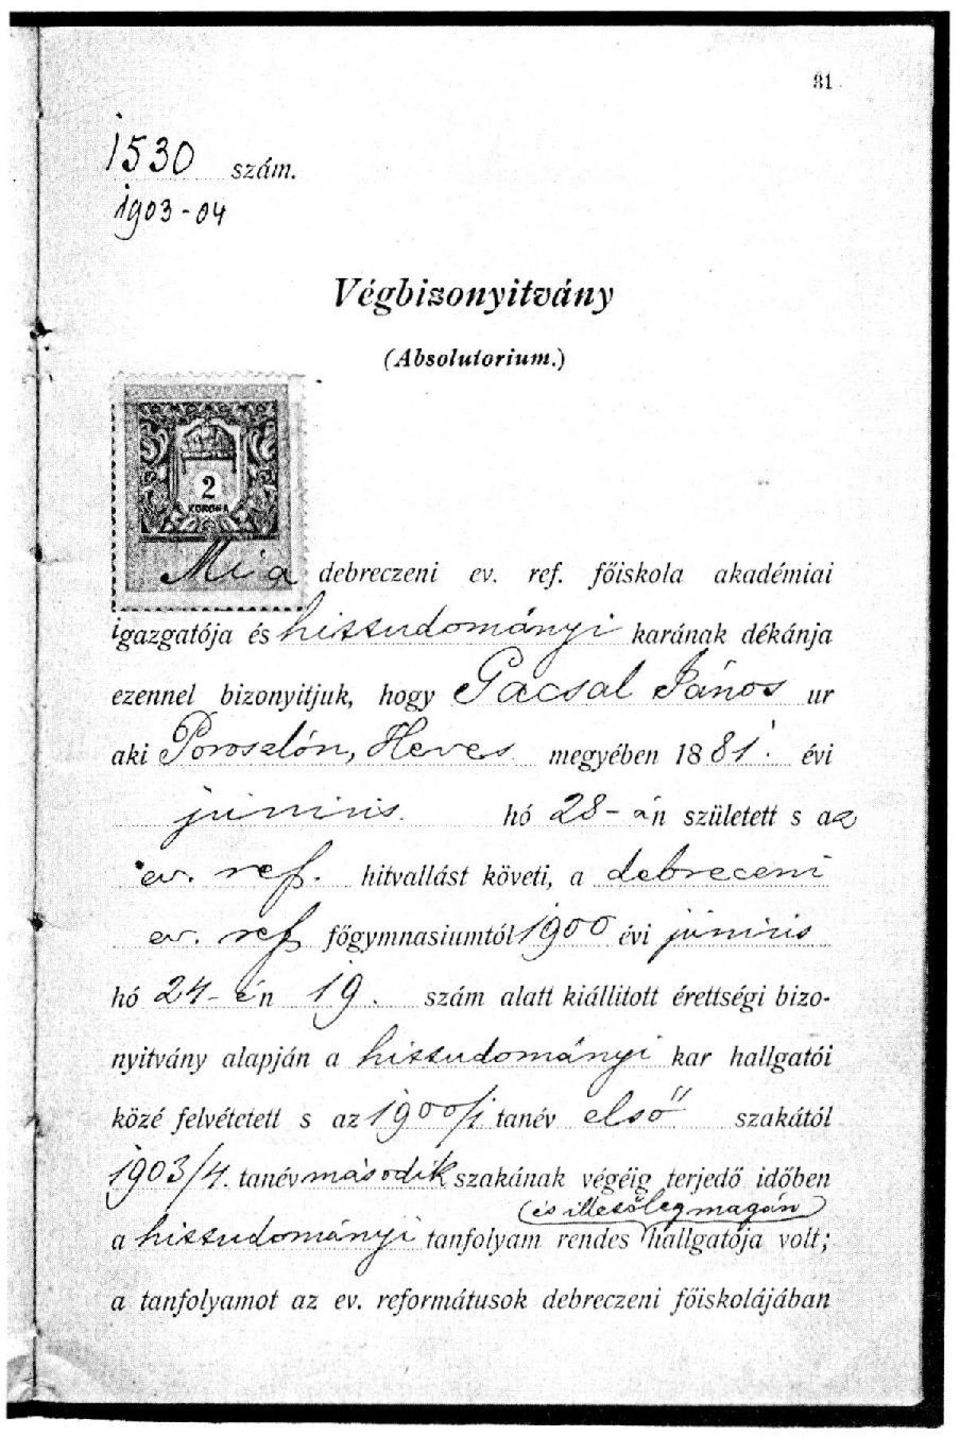 81
1530 szám.
1903-04
Végbizonyitvány
(Absolutorium.)
2
KORONA
Mi a debreczeni ev. ref. főiskola akadémiai
igazgatója és hittudományi karának dékánja
ezennel bizonyitjuk, hogy Gacsal János ur
aki Poroszlón, Heves megyében 1881. évi
június hó 28-án született s az
ev. ref. hitvallást követi, a debreceni
ev. ref főgymnasiumtól 1900 évi június
hó 24-én 19. szám alatt kiállitott érettségi bizo-
nyitvány alapján a hittudományi kar hallgatói
közé felvétetett s az 1900/1 tanév első szakától
1903/4. tanév második szakának végéig terjedő időben
(és illetőleg magán)
a hittudományi tanfolyam rendes hallgatója volt;
a tanfolyamot az ev. reformátusok debreczeni főiskolájában